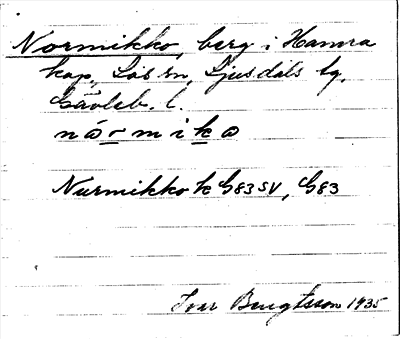 Normikko, berg i Hamra
kap, Lós sn, Ljusdals tg.
Gävleb. l.
nórmiko
Nurmikko k G83SV, G83
Ivar Bengtsson 1935